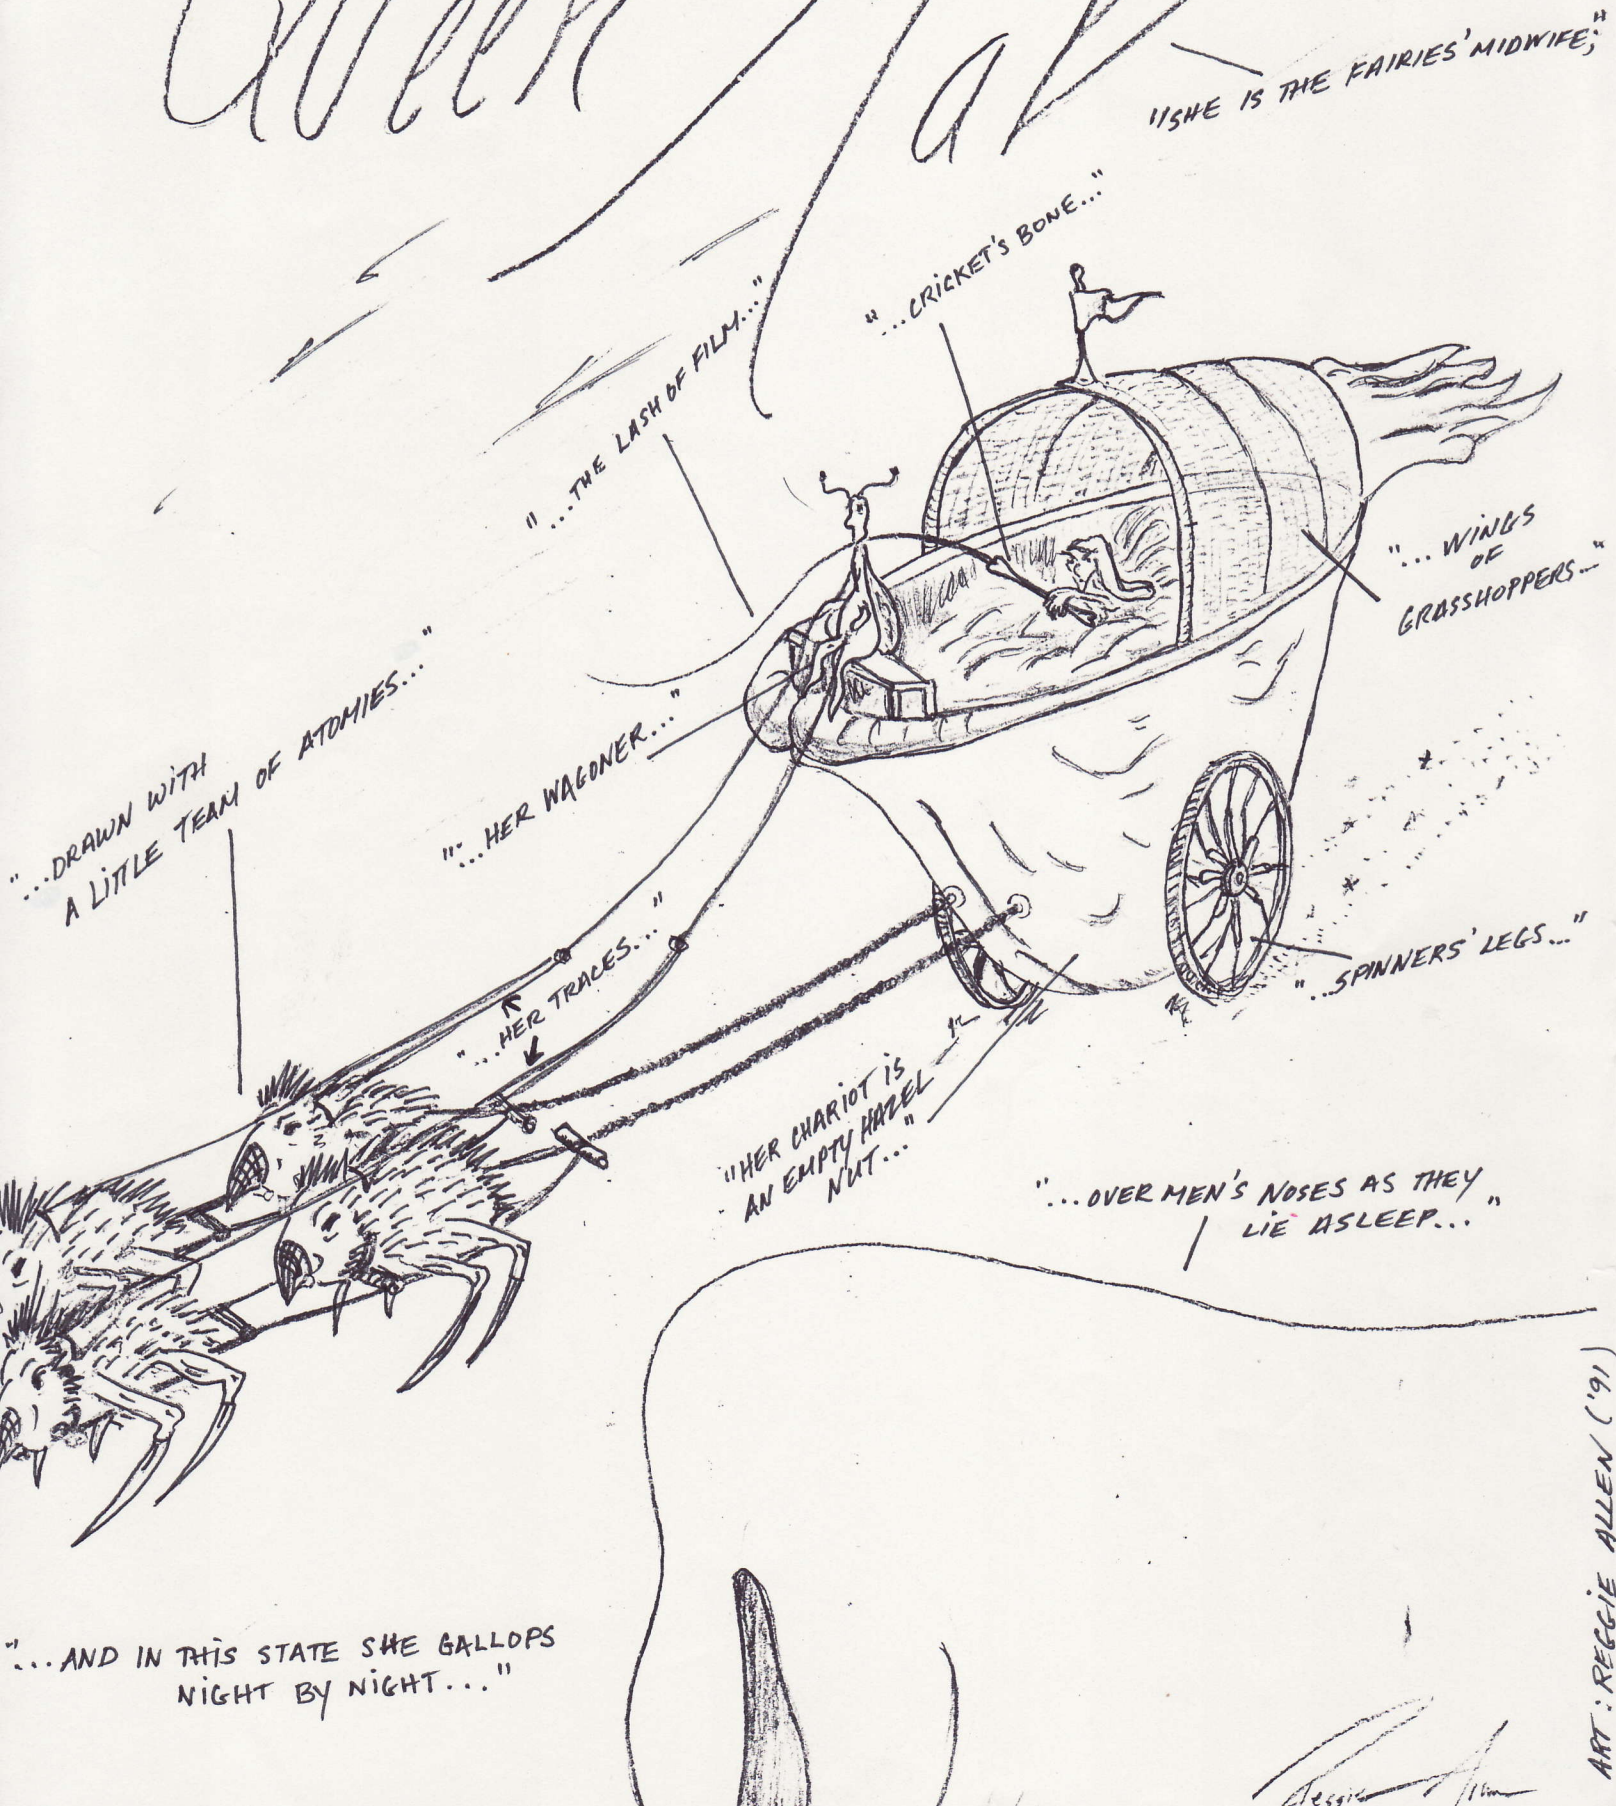 Queen Mab
"SHE IS THE FAIRIES' MIDWIFE;"
"...CRICKET'S BONE..."
"...THE LASH OF FILM..."
"...WINGS
OF
GRASSHOPPERS..."
"...DRAWN WITH
A LITTLE TEAM OF ATOMIES..."
"...HER WAGONER..."
"...HER TRACES..."
"...SPINNERS' LEGS..."
"HER CHARIOT IS
AN EMPTY HAZEL
NUT..."
"...OVER MEN'S NOSES AS THEY
LIE ASLEEP..."
"...AND IN THIS STATE SHE GALLOPS
NIGHT BY NIGHT..."
ART: REGGIE ALLEN ('91)
Reggie Allen